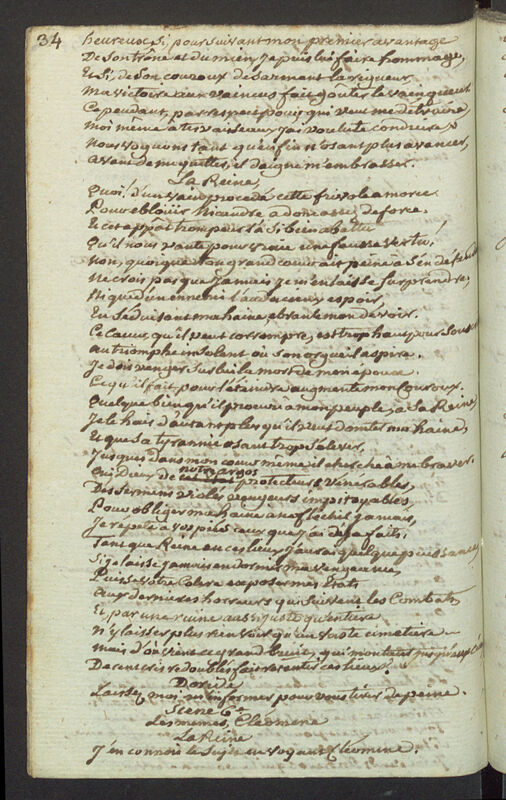 34
heureux si, poursuivant mon premier avantage
De son trône et du mien je puis lui faire hommage,
Et si, de son couroux desarmant la rigueur
Ma victoire aux vaincus fait goûter le vainqueur.
Cependant, par respect pour qui veut me détruire,
Moi même à tes vaisseaux j'ai voulu te conduire
Nous voguions tant qu'enfin n'osant plus avancer,
avant de me quitter, il daigne m'embrasser.
La Reine,
Quoi! d'un vain procédé cette frivole amorce
Pour eblouir Nicandre a donc assez de force.
Et cet appât trompeur l'a si bien abattu
Qu'il nous vante pour vraie une fausse vertu!
Non, quoique ton grand coeur ait peine à s'en défendre
Ne crois pas que jamais je m'en laisse surprendre,
Ni que d'un ennemi l'audacieux espoir,
En seduisant ma haine, ebranle mon devoir.
Ce coeur, qu'il veut corrompre, est trop haut pour
au triomphe insolent où son orgueil aspire.
Je dois venger sur lui la mort de mon epoux
Ce qu'il fait pour l'éteindre augmente mon couroux.
Quelque bien qu'il procure à mon peuple, à sa Reine
Je le hais d'autant plus qu'il veut domter ma haine,
Et que sa tyrannie osant trop s'elever,
Jusques dans mon coeur même il cherche à me braver.
notre argos
Oui, dieux de cet etat protecteurs venerables,
Des sermens violés vengeurs impitoyables
Pour obliger ma haine a ne flechir jamais,
Je repete a vos pieds ceux que j'ai deja faits.
Tant que Reine en ces lieux j'aurai quelque puissance
Si je laisse jamais endormir ma vengeance,
Puisse votre colere exposer mes Etats
Aux dernieres horreurs qui suivent les Combats,
Et, par une ruine aussi juste qu'entiere
N'y laisser plus rien voir qu'un vaste cimetiere
Mais d'où vient ce grand bruit, qui montant
De cent cris redoublés fait retentir ces lieux?
Doride
Laissez moi m'informer pour vous tirer de peine.
Scene 6e
Les mêmes, Cleomene
La Reine
J'en connois le sujet en voyant Cleomene.